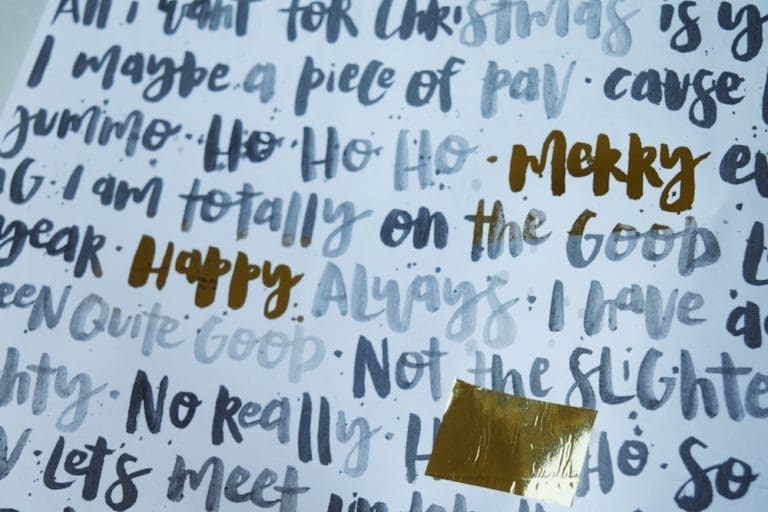 All I want for Christmas is
I maybe a piece of pav · cause
Jummo · Ho Ho Ho · Merry
I am totally on the Good
year · Happy Always · I have a
Quite Good · Not the slighte
ghty · No Really · H Ho · So
Let's Meet